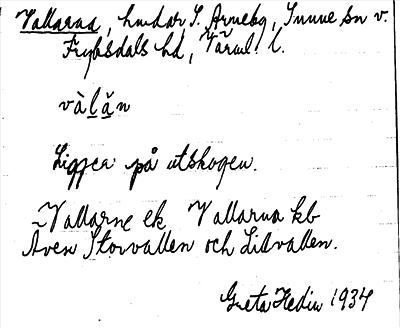 Vallarna, hmdar S. Arneby, Sunne sn v.
Fryksdals hd, Värml. l.
vàlạ̈n
Ligger på utskogen.
Vallarne ek Vallarna kb
Även Storvallen och Lillvallen.
Greta Hedin 1934